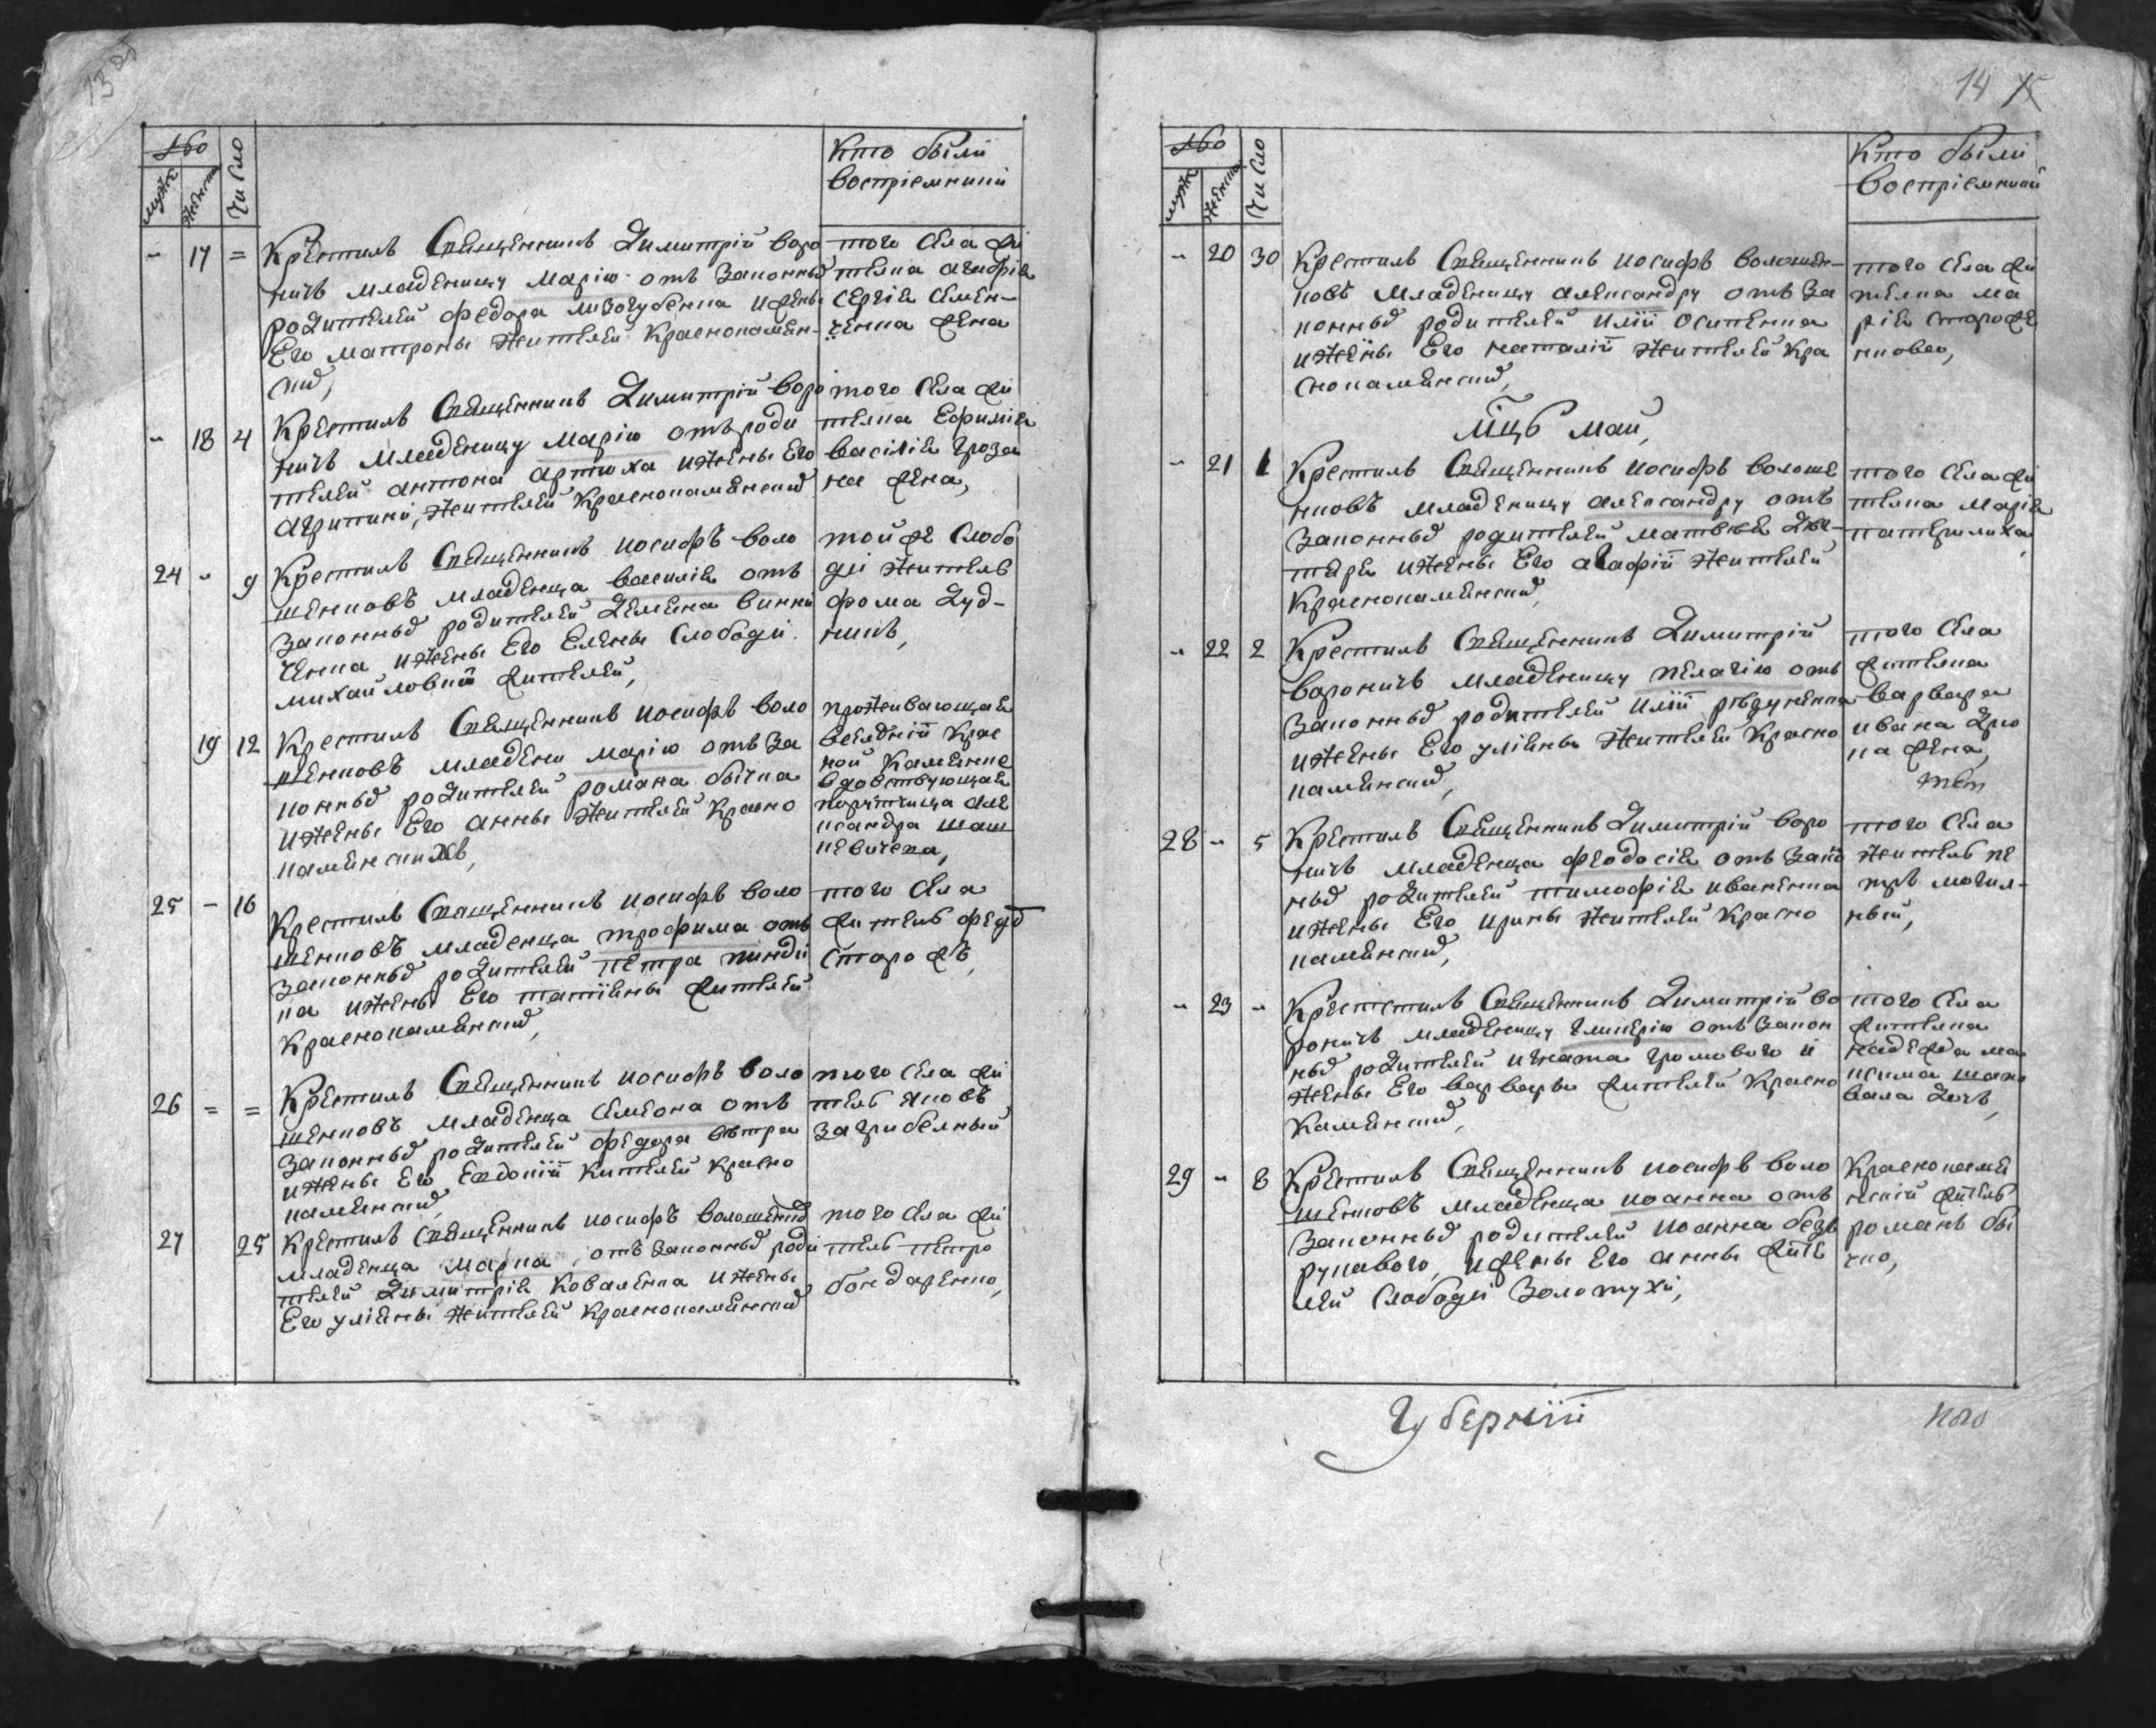 13 об
№
муж
женск
Число
Кто были
восприемники
- 17 = Крестилъ Священникъ Димитрій Воро
ничъ младеницу Марію отъ законныхъ
родителей Федора Лизогубенка и жены
Его Матроны жителей краснокамен-
скихъ,
того села жи
телка Агафія
Сергія Семен-
ченка жена
- 18 4 Крестилъ Священникъ Димитрій Воро
ничъ младеницу Марію отъ роди
телей Антона Артюха и жены Его
Агрипини, жителей краснокаменскихъ
того села жи
телка Ефимія
Василія Гроза
на жена,
24 - 9 Крестилъ Священникъ Иосифъ Воло
шенковъ младенца Василія отъ
законныхъ родителей Семена Винни
ченка и жены Его Елены Слободи
Михайловки жителей,
той же слобо
ди житель
Фома Дуд-
никъ,
19 12 Крестилъ Священникъ Иосифъ Воло
шенковъ младени Марію отъ за
конныхъ родителей Романа Бычка
и жены Его Анны жителей красно
каменскихъ,
проживающая
в селеніи Крас
ной Каменке
вдовствующая
порутчица Але
ксандра Шаш
кевичева,
25 - 16 Крестилъ Священникъ Иосифъ Воло
шенковъ младенца Трофима отъ
законныхъ родителей Петра Пинди
ка и жены Его Татіаны жителей
краснокаменскихъ,
того села
житель Федоръ
Старожъ,
26 = = Крестилъ Священникъ Иосифъ Воло
шенковъ младенца Симеона отъ
законныхъ родителей Федора Ветра
и жены Его Евдокіи жителей красно
каменскихъ,
того села жи
тель Яковъ
Загрибелный
27 25 Крестилъ Священникъ Иосифъ Волошенковъ
младенца Марка, отъ законныхъ роди
телей Димитрія Коваленка и жены
Его Уліаны жителей краснокаменскихъ
того села жи
тель Петро
Бондаренко,
14
№
муж
женск
Число
Кто были
восприемники
- 20 30 Крестилъ Священникъ Иосифъ Волошен-
ковъ младеницу Александру отъ за
конныхъ родителей Иліи Осипенка
и жены Его Наталіи жителей кра
снокаменскихъ,
того села жи
телка Ма
рія Староже
нкова,
Мцъ Май,
- 21 1 Крестилъ Священникъ Иосифъ Волоше
нковъ младеницу Александру отъ
законныхъ родителей Матвея Дже-
теря и жены Его Агафіи жителей
краснокаменскихъ,
того села жи
телка Марія
Катерилиха,
- 22 2 Крестилъ Священникъ Димитрій
Вороничъ младеницу Пелагію отъ
законныхъ родителей Иліи Ревуненка
и жены Его Уліаны жителей красно
каменскихъ,
того села
жителка
Варвара
Ивана Дро
на жена,
28 - 5 Крестилъ Священникъ Димитрій Воро
ничъ младенца Феодосія отъ зако
ныхъ родителей Тимофія Иваненка
и жены Его Ирины жителей красно
каменскихъ,
того села
житель Пе
тръ Могил-
ный,
- 23 - Крестилъ Священникъ Димитрій Во
роничъ младеницу Гликерію отъ закон
ныхъ родителей Игната Громового и
жены Его Варвары жителей красно
каменскихъ,
того села
жителка
Надежда Ма
ксима Шапо
вала дочь,
29 - 8 Крестилъ Священникъ Иосифъ Воло
шенковъ младенца Иоанна отъ
законныхъ родителей Иоанна Безъ
рукавого, и жены Его Анны жите
лей Слободи Золотухи,
краснокаме
нскій житель
Романъ Бы
чко,
Губерніи